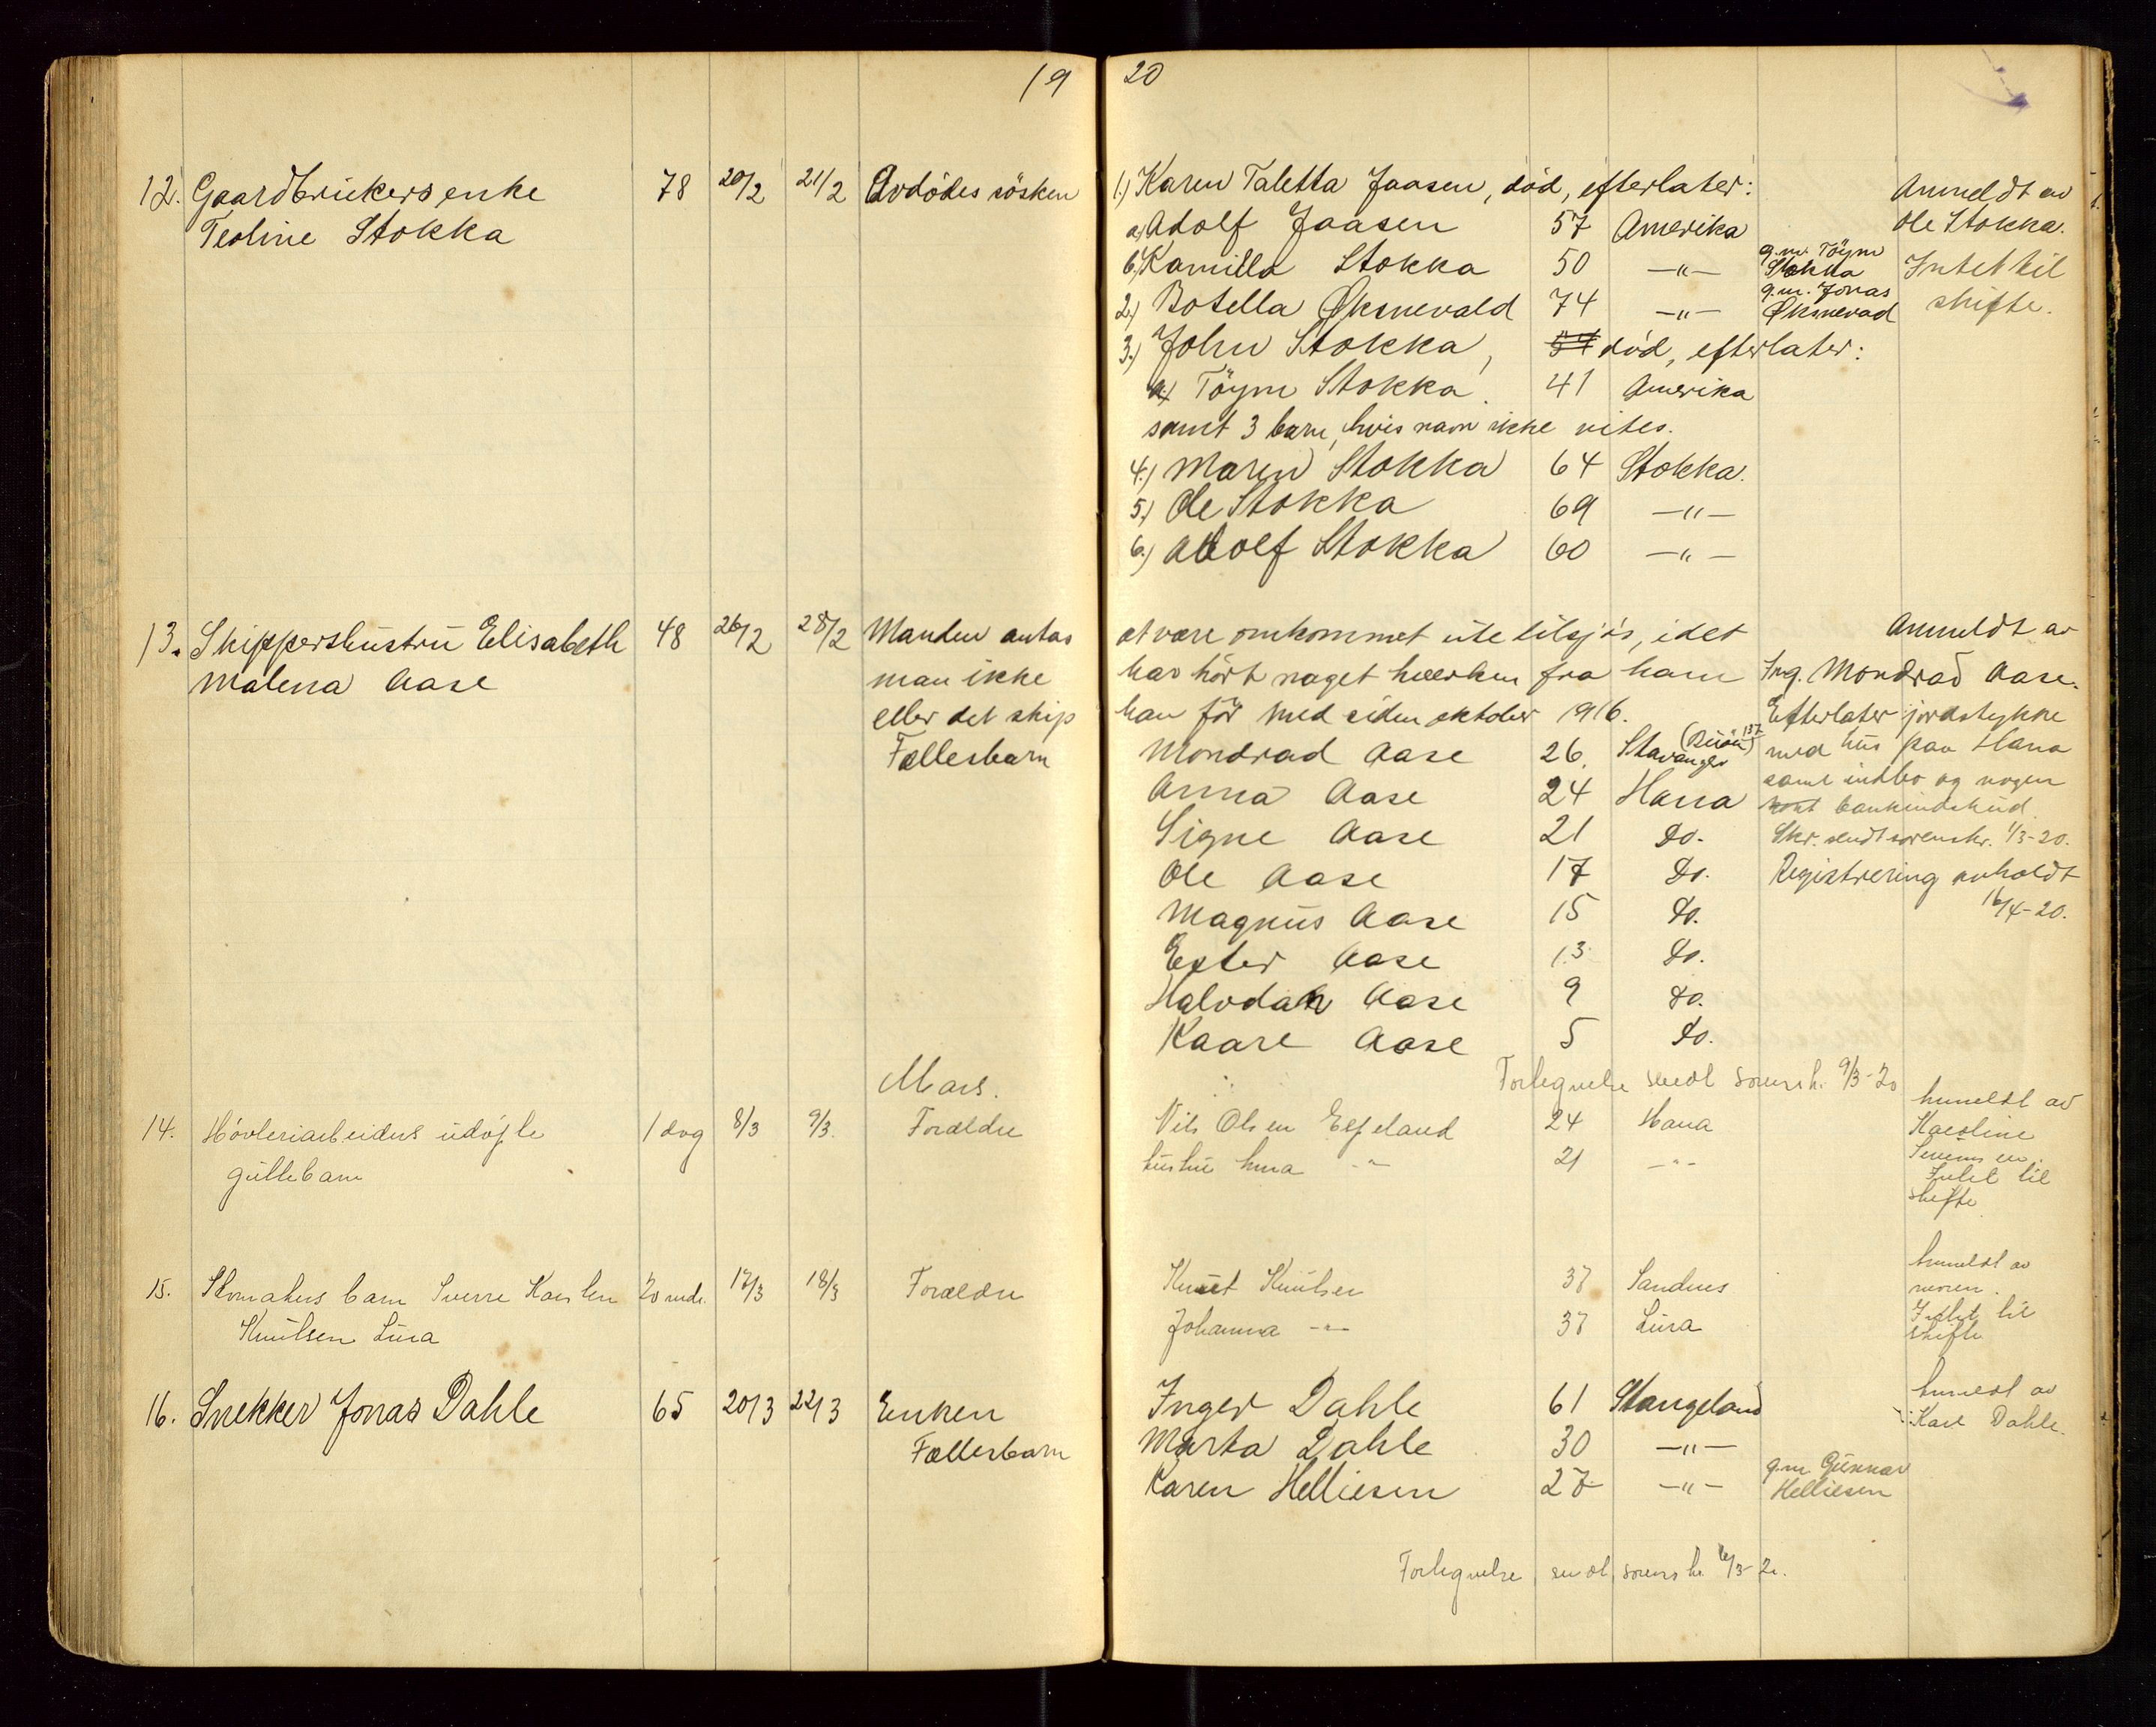 19
12. Gaardbrukersenke 78 20/2 21/2 Avdödes sösken
Teoline Stokka
13. Skippershustru Elisabeth 48 26/2 28/2 Manden antas
Malena Aase man ikke
eller det skip
Fællesbarn
Mars.
14. Hövleriarbeiders udöpte 1 dag 8/3 9/3 Forældre
guttebarn
15. Skomakers barn Sverre Karsten 20 mdr. 17/3 18/3 Forældre
Knutsen Lura
16. Snekker Jonas Dahle 65 20/3 22/3 Enken
Fællesbarn
20
1.) Karen Taletta Jaasen, död, efterlater: Anmeldt av
a) Adolf Jaasen 57 Amerika Ole Stokka.
b) Kamilla Stokka 50 —"— g.m. Töym Stokka Intet til
2.) Botella Øksnevald 74 —"— g.m. Jonas Øksnevad skifte.
3.) John Stokka, död, efterlater:
a) Töym Stokka. 41 Amerika
samt 3 barn, hvis navn ikke vites.
4.) Maren Stokka 64 Stokka.
5.) Ole Stokka 69 —"—
6.) Adolf Stokka 60 —"—
at være omkommet ute tilsjös, idet Anmeldt av
har hört noget hverken fra ham Ing. Mondrad Aase.
han för med siden oktober 1916. Efterlater jordstykke
Mondrad Aase 26. Stavanger med hus paa Hana
Anna Aase 24 Hana samt indbo og nogen
bankindskud.
Signe Aase 21 Do. Skr. sendt sorenskr. 1/3-20.
Ole Aase 17 Do. Registrering avholdt
Magnus Aase 15 Do. 16/4-20.
Ester Aase 13 Do.
Halvdan Aase 9 Do.
Kaare Aase 5 Do.
sendt sorensk. 9/3-20
Nils Olsen Espeland 24 Hana Anmeldt av
hustru —"— 21 —"— Karoline
Intet til
skifte
Knut Knutsen 37 Sandnes Anmeldt av
moren.
Johanna —"— 37 Lura Intet til
skifte
Inger Dahle 61 Stangeland Anmeldt av
Marta Dahle 30 —"— Karl Dahle.
Karen Helliesen 27 —"— g.m. Gunnar
Helliesen
sendt sorensk.